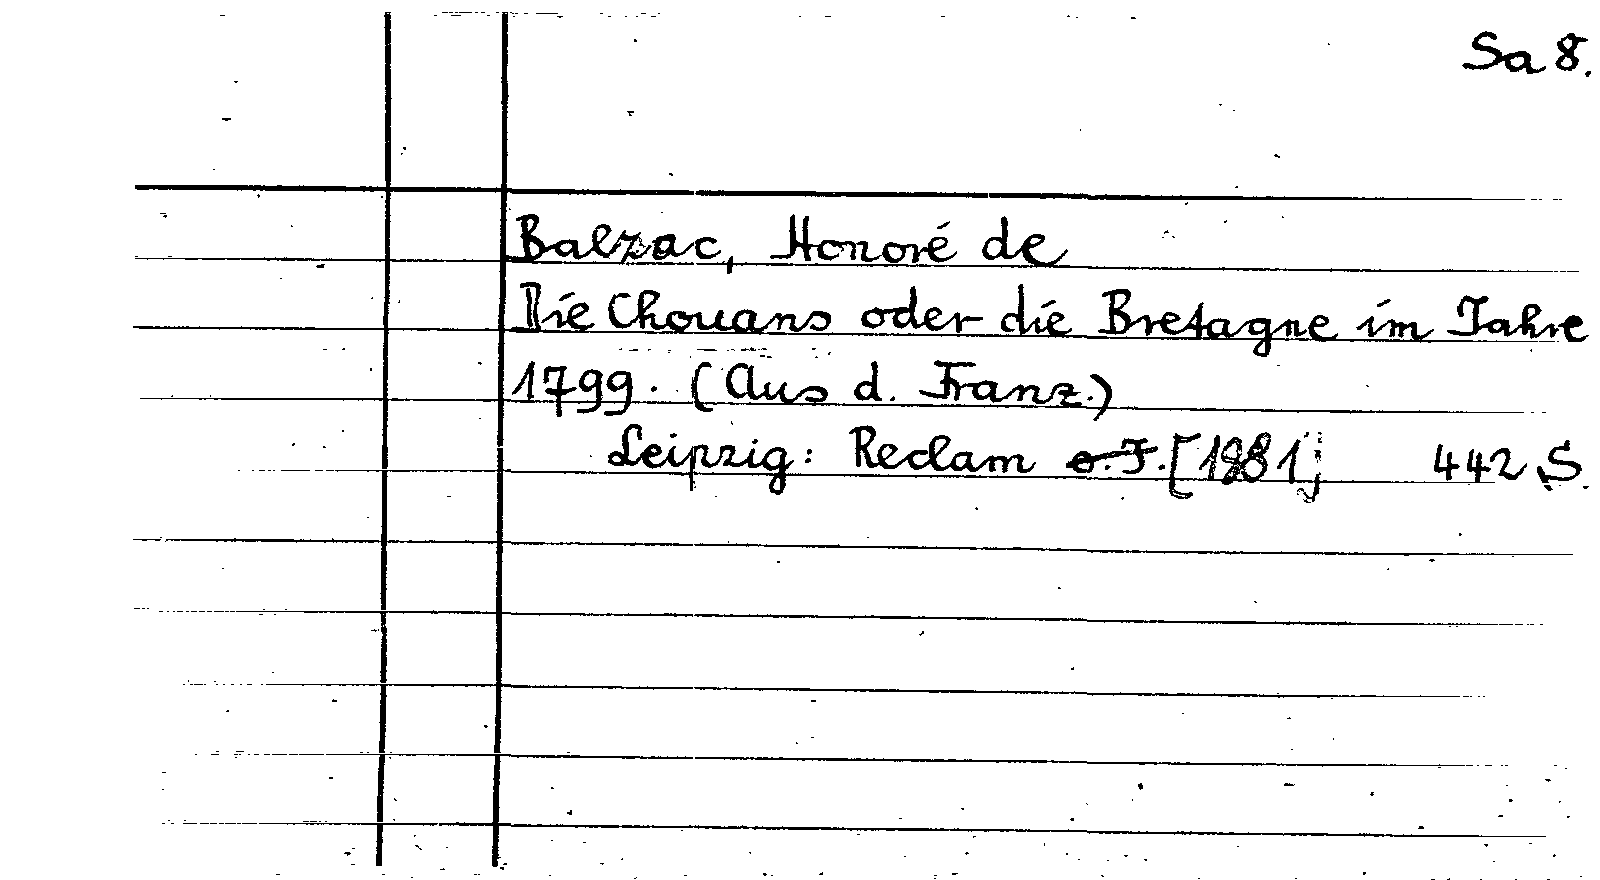 Sa 8.
Balzac, Honoré de
Die Chouans oder die Bretagne im Jahre
1799. (Aus d. Franz.)
Leipzig: Reclam o.J. [1981] 442 S.